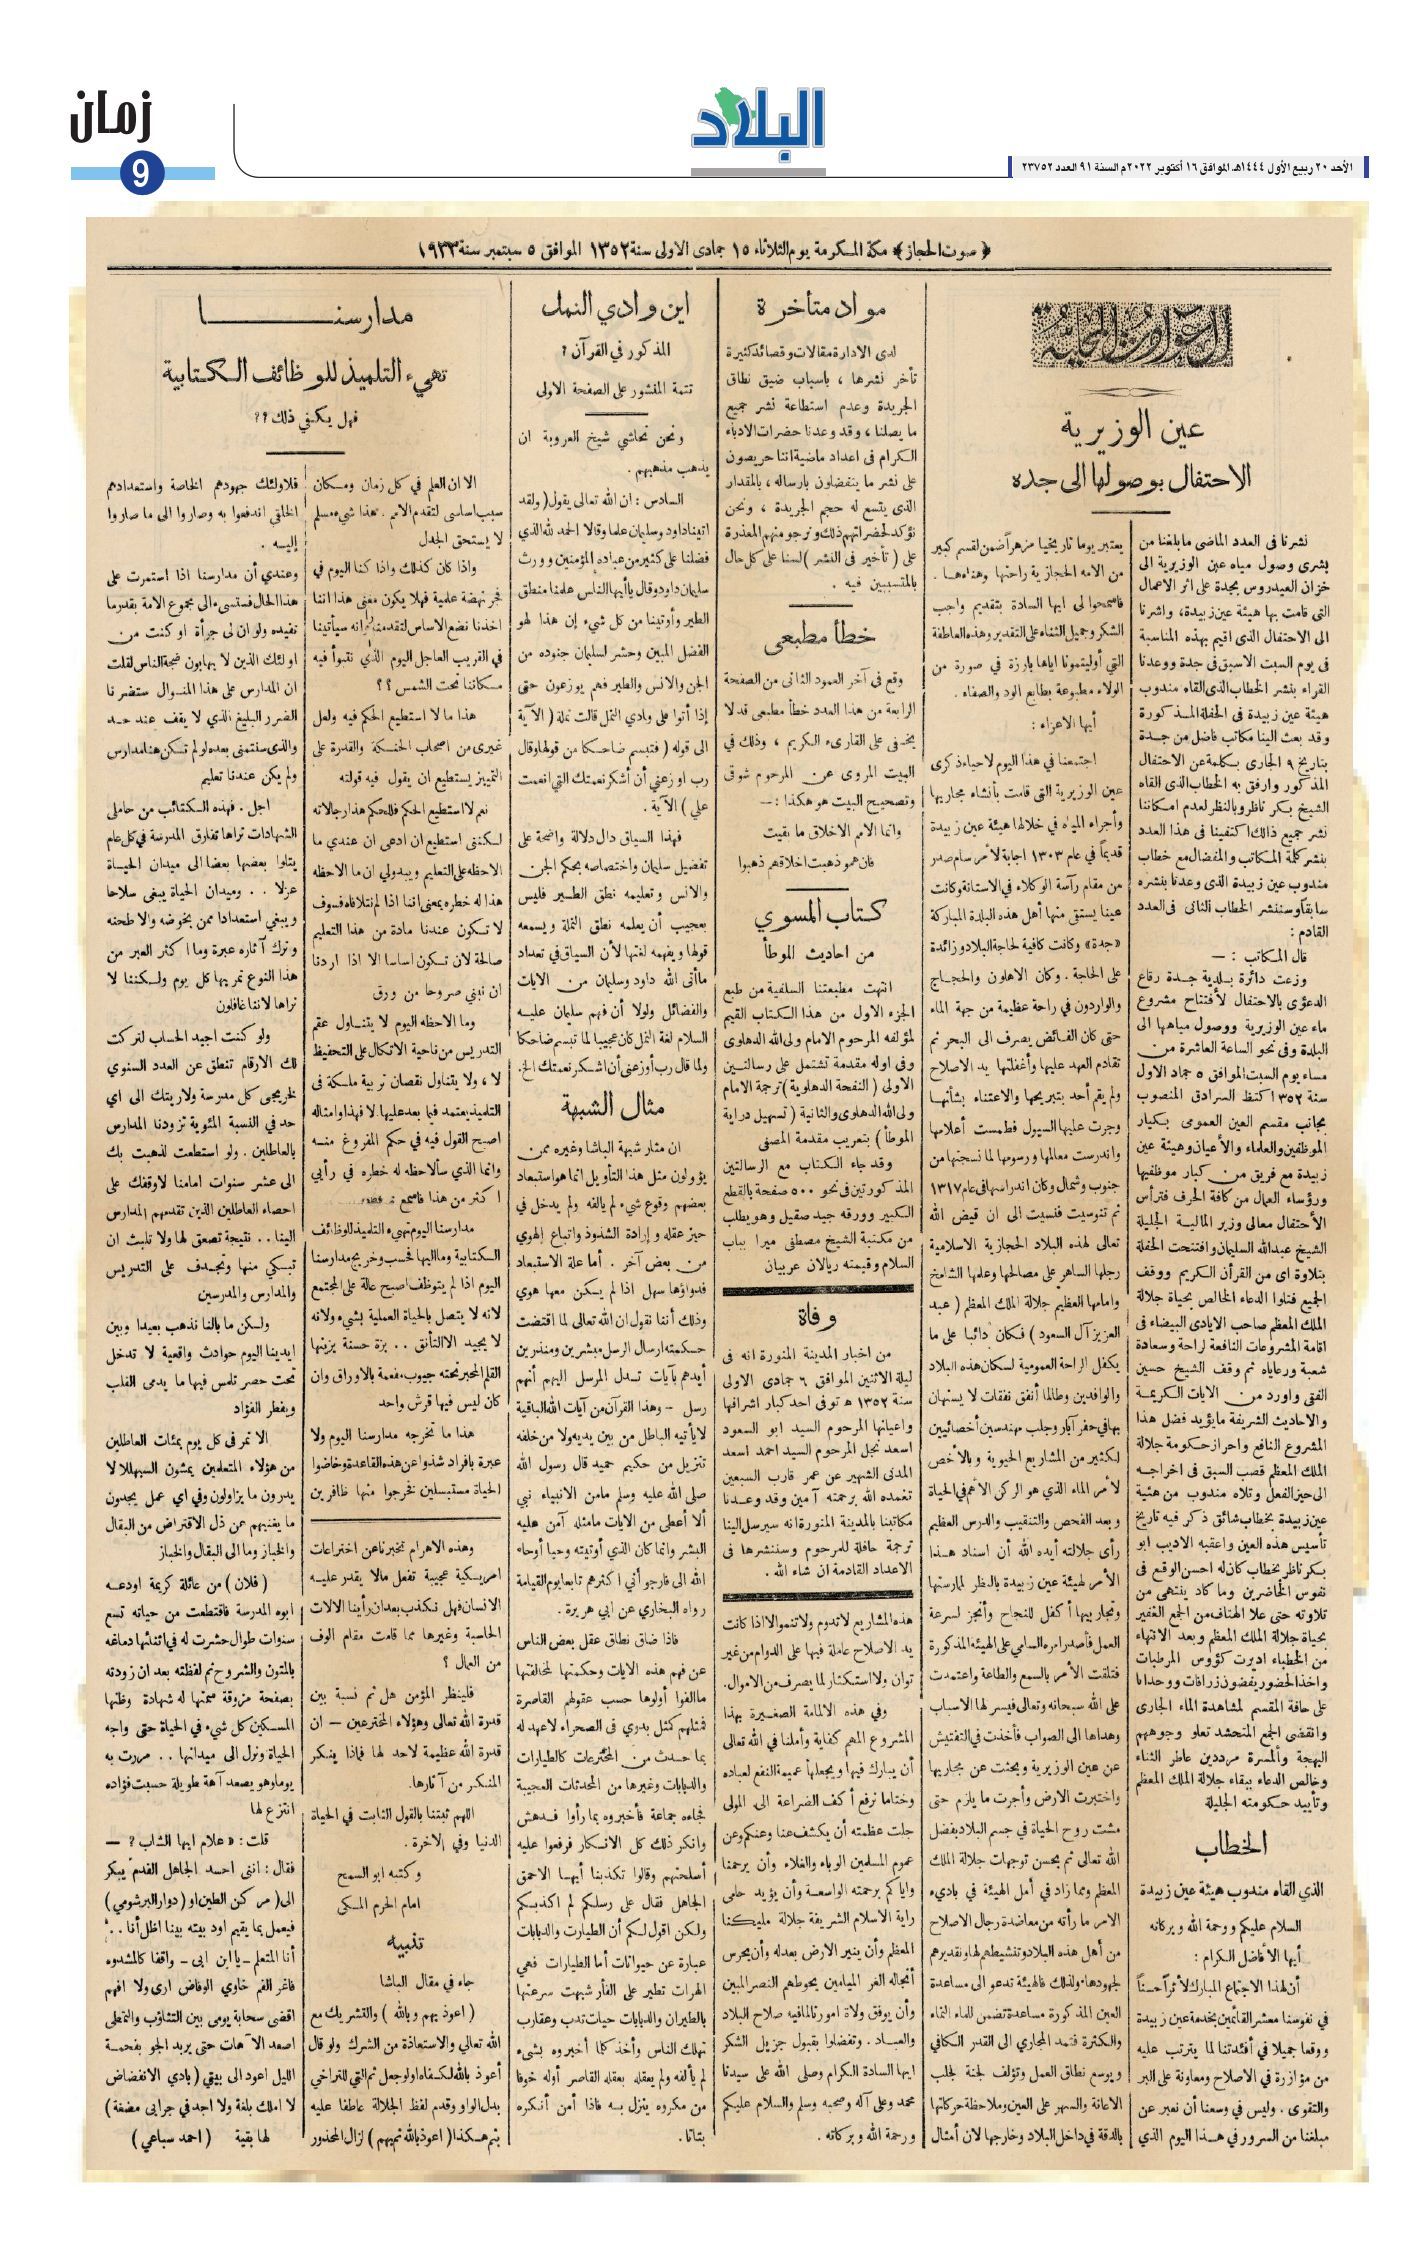 زمان
9
البلاد
الأحد ٢٠ ربيع الأول ١٤٤٤هـ الموافق ١٦ أكتوبر ٢٠٢٢م السنة ٩١ العدد ٢٣٧٥٢
﴿ صوت الحجاز ﴾ مكة المكرمة يوم الثلاثاء ١٥ جمادى الاولى سنة ١٣٥٢ الموافق ٥ سبتمبر سنة ١٩٣٣
عين الوزيرية
الاحتفال بوصولها الى جده
نشرنا فى العدد الماضى ما بلغنا من
بشرى وصول مياه عين الوزيرية الى
خزان العيدروس بجدة على اثر الاعمال
التى قامت بها هيئة عين زبيدة، واشرنا
الى الاحتفال الذى اقيم بهذه المناسبة
فى يوم السبت الاسبق فى جدة ووعدنا
القراء بنشر الخطاب الذى القاه مندوب
هيئة عين زبيدة فى الحفلة المذكورة
وقد بعث الينا مكاتب فاضل من جدة
بتاريخ ٩ الجارى بكلمة عن الاحتفال
المذكور وارفق به الخطاب الذى القاه
الشيخ بكر ناظر وبالنظر لعدم امكاننا
نشر جميع ذالك اكتفينا فى هذا العدد
بنشر كلمة المكاتب والمفضال مع خطاب
مندوب عين زبيدة الذى وعدنا بنشره
سابقا وسننشر الخطاب الثانى فى العدد
القادم :
قال المكاتب : —
وزعت دائرة بلدية جدة رقاع
الدعوى بالاحتفال لأفتتاح مشروع
ماء عين الوزيرية ووصول مياهها الى
البلدة وفى نحو الساعة العاشرة من
مساء يوم السبت الموافق ٥ جماد الاول
سنة ١٣٥٢ اكتظ السرادق المنصوب
بجانب مقسم العين العمومى بكبار
الموظفين والعلماء والأعيان وهيئة عين
زبيدة مع فريق من كبار موظفيها
ورؤساء العمال من كافة الحرف فترأس
الأحتفال معالى وزير المالية الجليلة
الشيخ عبدالله السليمان وافتتحت الحفلة
بتلاوة اى من القرأن الكريم ووقف
الجميع فتلوا الدعاء الخالص بحياة جلالة
الملك المعظم صاحب الايادى البيضاء فى
اقامة المشروعات النافعة لراحة وسعادة
شعبة ورعاياه ثم وقف الشيخ حسين
الفقى واورد من الايات الكريمة
والاحاديث الشريفة مايؤيد فضل هذا
المشروع النافع واحراز حكومة جلالة
الملك المعظم قصب السبق فى اخراجه
الى حيز الفعل وتلاه مندوب من هئية
عين زبيدة بخطاب شائق ذكر فيه تاريخ
تأسيس هذه العين واعقبه الاديب ابو
بكر ناظر بخطاب كان له احسن الوقع فى
نفوس الحاضرين وما كاد ينتهى من
تلاوته حتى علا الهتاف من الجمع الغفير
بحياة جلالة الملك المعظم وبعد الانتهاء
من الخطباء اديرت كؤوس المرطبات
واخذ الحضور يفضون زرافات ووحدانا
على حافة المقسم لمشاهدة الماء الجارى
وانقضى الجمع المنحشد تعلو وجوههم
البهجة والمسرة مرددين عاطر الثناء
وخالص الدعاء ببقاء جلالة الملك المعظم
وتأييد حكومته الجليلة
الخطاب
الذي القاه مندوب هيئة عين زبيدة
السلام عليكم ورحمة الله وبركاته
أيها الأفاضل الكرام :
أن لهذا الاجتماع المبارك لأثراً حسناً
في نفوسنا معشر القائمين بخدمة عين زبيدة
ووقعا جميلا في أفئدتنا لما يترتب عليه
من مؤازرة في الاصلاح ومعاونة على البر
والتقوى . وليس في وسعنا أن نعبر عن
مبلغنا من السرور في هذا اليوم الذي
يعتبر يوما تاريخيا مزهراً ضمن لقسم كبير
من الامه الحجازية راحتها وهناءها .
فاسمحوا لى ايها السادة بتقديم واجب
الشكر وجميل الثناء على التقدير وهذه العاطفة
التي أوليتمونا اياها بارزة في صورة من
الولاء مطبوعة بطابع الود والصفاء .
أيها الاعزاء :
اجتمعنا في هذا اليوم لاحياء ذكرى
عين الوزيرية التى قامت بأنشاء مجاريها
وأجراء المياه في خلالها هيئة عين زبيدة
قديماً في عام ١٣٠٣ اجابة لأمر سام صدر
من مقام رآسة الوكلاء في الاستانة وكانت
عينا يستقى منها أهل هذه البلدة المباركة
«جدة» وكانت كافية لحاجة البلاد وزائدة
على الحاجة . وكان الاهلون والحجاج
والواردون في راحة عظيمة من جهة الماء
حتى كان الفائض يصرف الى البحر ثم
تقادم العهد عليها وأغفلتها يد الاصلاح
ولم يقم أحد بتبريحها والاعتناء بشأنها
وجرت عليها السيول فطمست أعلامها
واندرست معالمها ورسومها لما نسجتها من
جنوب وشمال وكان اندراسها فى عام ١٣١٧
ثم تنوسيت فنسيت الى ان قيض الله
تعالى لهذه البلاد الحجازية الاسلامية
رجلها الساهر على مصالحها وعلمها الشامخ
وامامها العظيم جلالة الملك المعظم ( عبد
العزيز آل السعود ) فكان دائبا على ما
يكفل الراحة العمومية لسكان هذه البلاد
والوافدين وطالما أنفق نفقات لا يستهان
بها في حفر آبار وجلب مهندسين أخصائيين
لكثير من المشاريع الحيوية وبالأخص
لأمر الماء الذي هو الركن الأعم في الحياة
وبعد الفحص والتنقيب والدرس العظيم
رأى جلالته أيده الله أن اسناد هذا
الأمر لهيئة عين زبيدة بالنظر لممارستها
وتجاريبها أكفل للنجاح وأنجز لسرعة
العمل فأصدر امره السامى على الهيئة المذكورة
فتلقت الأمر بالسمع والطاعة واعتمدت
على الله سبحانه وتعالى فيسر لها الاسباب
وهداها الى الصواب فأخذت في التفتيش
عن عين الوزيرية وبحثت عن مجاريها
واختبرت الارض وأجرت ما يلزم حتى
مشت روح الحياة في جسم البلاد بفضل
الله تعالى ثم بحسن توجهات جلالة الملك
المعظم ومما زاد في أمل الهيئة في بادىء
الامر ما رأته من معاضدة رجال الاصلاح
من أهل هذه البلاد وتنشيطهم لها وتقديرهم
لجهودها . ولذلك فالهيئة تدعو الى مساعدة
العين المذكورة مساعدة تضمن للماء النماء
والكثرة فتمد المجاري الى القدر الكافي
ويوسع نطاق العمل وتؤلف لجنة لجلب
الاعانة والسهر على العين وملاحظة حركاتها
بالدقة في داخل البلاد وخارجها لان أمثال
مواد متأخرة
لدى الادارة مقالات وقصائد كثيرة
تأخر نشرها ، باسباب ضيق نطاق
الجريدة وعدم استطاعة نشر جميع
ما يصلنا ، وقد وعدنا حضرات الادباء
الكرام فى اعداد ماضية اننا حريصون
على نشر ما يتفضلون بارساله ، بالمقدار
الذى يتسع له حجم الجريدة ، ونحن
نؤكد لحضراتهم ذلك ونرجو منهم المعذرة
على ( تأخير فى النشر ) لسنا على كل حال
بالمتسببين فيه .
خطأ مطبعى
وقع فى آخر العمود الثانى من الصفحة
الرابعة من هذا العدد خطأ مطبعى قد لا
يخفى على القارىء الكريم ، وذلك في
البيت المروى عن المرحوم شوقى
وتصحيح البيت هو هكذا : —
وانما الامم الاخلاق ما بقيت
فان همو ذهبت اخلاقهم ذهبوا
كتاب المسوي
من احاديث الموطأ
انتهت مطبعتنا السلفية من طبع
الجزء الاول من هذا الكتاب القيم
لمؤلفه المرحوم الامام ولى الله الدهلوى
وفى اوله مقدمة تشتمل على رسالتين
الاولى ( النفحة الدهلوية ) ترجمة الامام
ولى الله الدهلوى والثانية ( تسهيل دراية
الموطأ ) بتعريب مقدمة المصفى
وقد جاء الكتاب مع الرسالتين
المذكورتين فى نحو ٥٠٠ صفحة بالقطع
الكبير وورقه جيد صقيل وهو يطلب
من مكتبة الشيخ مصطفى ميرا بباب
السلام وقيمته ريالان عربيان
وفاة
من اخبار المدينة المنورة انه فى
ليلة الاثنين الموافق ٦ جمادى الاولى
سنة ١٣٥٢ ه توفى احد كبار اشرافها
واعيانها المرحوم السيد ابو السعود
اسعد نجل المرحوم السيد احمد اسعد
المدنى الشهير عن عمر قارب السبعين
تغمده الله برحمته آمين وقد وعدنا
مكاتبنا بالمدينة المنورة انه سيرسل الينا
ترجمة حافلة للمرحوم وسننشرها فى
الاعداد القادمة ان شاء الله .
هذه المشاريع لا تدوم ولا تنمو الا اذا كانت
يد الاصلاح عاملة فيها على الدوام من غير
توان ولا استكثار لما يصرف من الاموال.
وفي هذه الالمامة الصغيرة بهذا
المشروع المهم كفاية وأملنا في الله تعالى
أن يبارك فيها ويجعلها عميمة النفع لعباده
وختاما نرفع أكف الضراعة الى المولى
جلت عظمته أن يكشف عنا وعنكم وعن
عموم المسلمين الوباء والغلاء وأن يرحمنا
واياكم برحمته الواسعة وأن يؤيد حامى
راية الاسلام الشريفة جلالة مليكنا
المعظم وأن ينير الارض بعدله وأن يحرس
أنجاله الغر الميامين يحوطهم النصر المبين
وأن يوفق ولاة امورنا لما فيه صلاح البلاد
والعباد . وتفضلوا بقبول جزيل الشكر
ايها السادة الكرام وصلى الله على سيدنا
محمد وعلى آله وصحبه وسلم والسلام عليكم
ورحمة الله وبركاته .
اين وادي النمل
المذكور في القرآن ؟
تتمة المنشور على الصفحة الاولى
ونحن نحاشي شيخ العروبة ان
يذهب مذهبهم .
السادس : ان الله تعالى يقول ( ولقد
اتينا داود وسليمان علما وقالا الحمد لله الذي
فضلنا على كثير من عباده المؤمنين وورث
سليمان داود وقال يأأيها الناس علمنا منطق
الطير وأوتينا من كل شيء إن هذا لهو
الفضل المبين وحشر لسليمان جنوده من
الجن والانس والطير فهم يوزعون حتى
إذا أتوا على وادي النمل قالت نملة ( الآية
الى قوله ( فتبسم ضاحكا من قولها وقال
رب اوزعني أن أشكر نعمتك التي انعمت
علي ) الآية .
فهذا السياق دال دلالة واضحة على
تفضيل سليمان واختصاصه بحكم الجن
والانس وتعليمه نطق الطير فليس
بعجيب أن يعلمه نطق النملة ويسمعه
قولها ويفهمه لغتها لأن السياق في تعداد
ماأتى الله داود وسليمان من الايات
والفضائل ولولا أن فهم سليمان عليه
السلام لغة النمل كان عجيبا لما تبسم ضاحكا
ولما قال رب أوزعني أن اشكر نعمتك الخ.
مثال الشبهة
ان مثار شبهة الباشا وغيره ممن
يؤولون مثل هذا التأويل انما هو استبعاد
بعضهم وقوع شيء لم يالفه ولم يدخل في
حيز عقله وإرادة الشذوذ واتباع الهوي
من بعض آخر . أما علة الاستبعاد
فدواؤها سهل اذا لم يكن معها هوي
وذلك أننا نقول ان الله تعالى لما اقتضت
حكمته ارسال الرسل مبشرين ومنذرين
أيدهم بآيات تدل المرسل اليهم أنهم
رسل – وهذا القرآن من آيات الله الباقية
لا يأتيه الباطل من بين يديه ولا من خلفه
تنزيل من حكيم حميد قال رسول الله
صلى الله عليه وسلم مامن الانبياء نبي
ألا أعطى من الايات مامثله آمن عليه
البشر وانما كان الذي أوتيته وحيا أوحاه
الله الى فارجو أني اكثرهم تابعا يوم القيامة
رواه البخاري عن ابي هريرة .
فاذا ضاق نطاق عقل بعض الناس
عن فهم هذه الايات وحكمتها لمخالفتها
ماالفوا أولوها حسب عقولهم القاصرة
فمثلهم كمثل بدري في الصحراء لا عهد له
بما حدث من المخترعات كالطيارات
والدبابات وغيرها من المحدثات العجيبة
فجاءه جماعة فأخبروه بما رأوا فدهش
وانكر ذلك كل الانكار فرفعوا عليه
أسلحتهم وقالوا تكذبنا أيها الاحمق
الجاهل فقال على رسلكم لم اكذبكم
ولكن اقول لكم أن الطيارت والدبابات
عبارة عن حيوانات أما الطيارات فهي
الهرات تطير على الفأر شبهت سرعتها
بالطيران والدبابات حيات تدب وعقارب
تهلك الناس وأخذ كما أخبروه بشيء
لم يألفه ولم يعقله بعقله القاصر أوله خوفا
من مكروه ينزل به فاذا أمن أنكره
بتاتا.
مدارسنا
تهيء التلميذ للوظائف الكتابية
فهل يكفي ذلك ؟؟
الا ان العلم في كل زمان ومكان
سبب اساسى لتقدم الامم . هذا شيء مسلم
لا يستحق الجدل
واذا كان كذلك واذا كنا اليوم في
فجر نهضة علمية فهلا يكون معنى هذا اننا
اخذنا نضع الاساس لتقدمنا وانه سيأتينا
في القريب العاجل اليوم الذي نتبوأ فيه
مكاننا تحت الشمس ؟؟
هذا ما لا استطيع الحكم فيه ولعل
غيرى من اصحاب الحنكة والقدرة على
التمييز يستطيع ان يقول فيه قولته
نعم لا استطيع الحكم فللحكم هذا رجالاته
لكننى استطيع ان ادعى ان عندي ما
الاحظه على التعليم ويبدولي ان ما الاحظه
هذا له خطره بمعنى اننا اذا لم نتلافاه فسوف
لا تكون عندنا مادة من هذا التعليم
صالحة لان تكون اساسا الا اذا اردنا
ان نبني صروحا من ورق
وما الاحظه اليوم لا يتناول عقم
التدريس من ناحية الاتكال على التحفيظ
لا ، ولا يتناول نقصان تربية ملكة فى
التلميذ يعتمد فيما بعد عليها. لا فهذا وامثاله
اصبح القول فيه في حكم المفروغ منه
وانما الذي سألاحظه له خطره في رأيي
اكثر من هذا فاسمع ثم
مدارسنا اليوم تهيء التلميذ للوظائف
الكتابية وما اليها فحسب وخريج مدارسنا
اليوم اذا لم يتوظف اصبح عالة على المجتمع
لانه لا يتصل بالحياة العملية بشيء ولانه
لا يجيد الا التأنق .. بزة حسنة يزينها
القلم المحبر تحته جيوب مفعمة بالاوراق وان
كان ليس فيها قرش واحد
هذا ما تخرجه مدارسنا اليوم ولا
عبرة بافراد شذوا عن هذه القاعدة وخاضوا
الحياة مستبسلين فخرجوا منها ظافرين
وهذه الاهرام تخبرنا عن اختراعات
امريكية عجيبة تفعل مالا يقدر عليه
الانسان فهل نكذب بعد ان رأينا الالات
الحاسبة وغيرها مما قامت مقام الوف
من العمال ؟
فلينظر المؤمن هل ثم نسبة بين
قدرة الله تعالى وهؤلاء المخترعين — ان
قدرة الله عظيمة لاحد لها فإذا ينكر
المنكر من آثارها.
اللهم ثبتنا بالقول الثابت في الحياة
الدنيا وفي الاخرة .
وكتبه ابو السمح
امام الحرم المكى
تنبيه
جاء في مقال الباشا
( اعوذ بهم وبالله ) والتشريك مع
الله تعالي والاستعاذة من الشرك ولو قال
أعوذ بالله لكفاه او لو جعل ثم التي للتراخي
بدل الواو وقدم لفظ الجلالة عاطفا عليه
بثم هكذا ( اعوذ بالله ثم بهم ) لزال المحذور
فلاولئك جهودهم الخاصة واستعدادهم
الخلقي اندفعوا به وصاروا الى ما صاروا
إليه .
وعندي أن مدارسنا اذا استمرت على
هذا الحال فستسىء الى مجموع الامة بقدر ما
تفيده ولو ان لى جرأة او كنت من
اولئك الذين لا يهابون ضجة الناس لقلت
ان المدارس على هذا المنوال ستضرنا
الضرر البليغ الذي لا يقف عند حد
والذى سنتمنى بعده لو لم تكن هنا مدارس
ولم يكن عندنا تعليم
اجل . فهذه الكتائب من حاملى
الشهادات تراها تفارق المدرسة في كل عام
يتلوا بعضها بعضا الى ميدان الحياة
عزلا .. وميدان الحياة يبغى سلاحا
ويبغي استعدادا ممن يخوضه والا طحنه
وترك آثاره عبرة وما اكثر العبر من
هذا النوع تمر بها كل يوم ولكننا لا
نراها لاننا غافلون
ولو كنت اجيد الحساب لتركت
لك الارقام تنطق عن العدد السنوي
لخريجى كل مدرسة ولاريتك الى اي
حد في النسبة المئوية تزودنا المدارس
بالعاطلين . ولو استطعت لذهبت بك
الى عشر سنوات امامنا لاوقفك على
احصاء العاطلين الذين تقدمهم المدارس
الينا .. نتيجة تصعق لها ولا تلبث ان
تبكي منها وتجدف على التدريس
والمدارس والمدرسين
ولكن ما بالنا نذهب بعيدا وبين
ايدينا اليوم حوادث واقعية لا تدخل
تحت حصر تلمس فيها ما يدمى القلب
ويفطر الفؤاد
الا تمر فى كل يوم بمئات العاطلين
من هؤلاء المتعلمين يمشون السبهللا لا
يدرون ما يزاولون وفي اي عمل يجدون
ما يغنيهم عن ذل الاقتراض من البقال
والخباز وما الى البقال والخباز
( فلان ) من عائلة كريمة اودعه
ابوه المدرسة فاقتطعت من حياته تسع
سنوات طوال حشرت له في اثنائها دماغه
بالمتون والشروح ثم لفظته بعد ان زودته
بصفحة مزوقة سمتها له شهادة وظنها
المسكين كل شيء في الحياة حتى واجه
الحياة ونزل الى ميدانها .. مررت به
يوما وهو يصعد آهة طويلة حسبت فؤاده
انتزع لها
قلت : « علام ايها الشاب ؟ —
فقال : اننى احسد الجاهل القدم يبكر
الى ( مركن الطين او ( دوار البرشومى )
فيعمل بما يقيم اود بيته بينا اظل أنا ..!
أنا المتعلم – ياابن ابى – واقفا كالمشدوه
فاغر الفم خاوي الوفاض ارى ولا افهم
اقضى سحابة يومى بين التثاؤب والتمطى
اصعد الآهات حتى يربد الجو بفحمة
الليل اعود الى بيتي ( بادي الانفضاض
لا املك بلغة ولا اجد في جرابى مضغة )
لها بقية ( احمد سباعي )